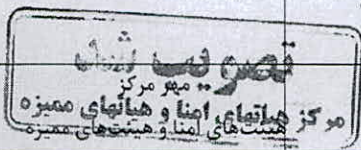 تصویب شد
مهر مرکز
مرکز هیأتهای امنا و هیأتهای ممیزه
هیئت‌های امنا و هیئت‌های ممیزه